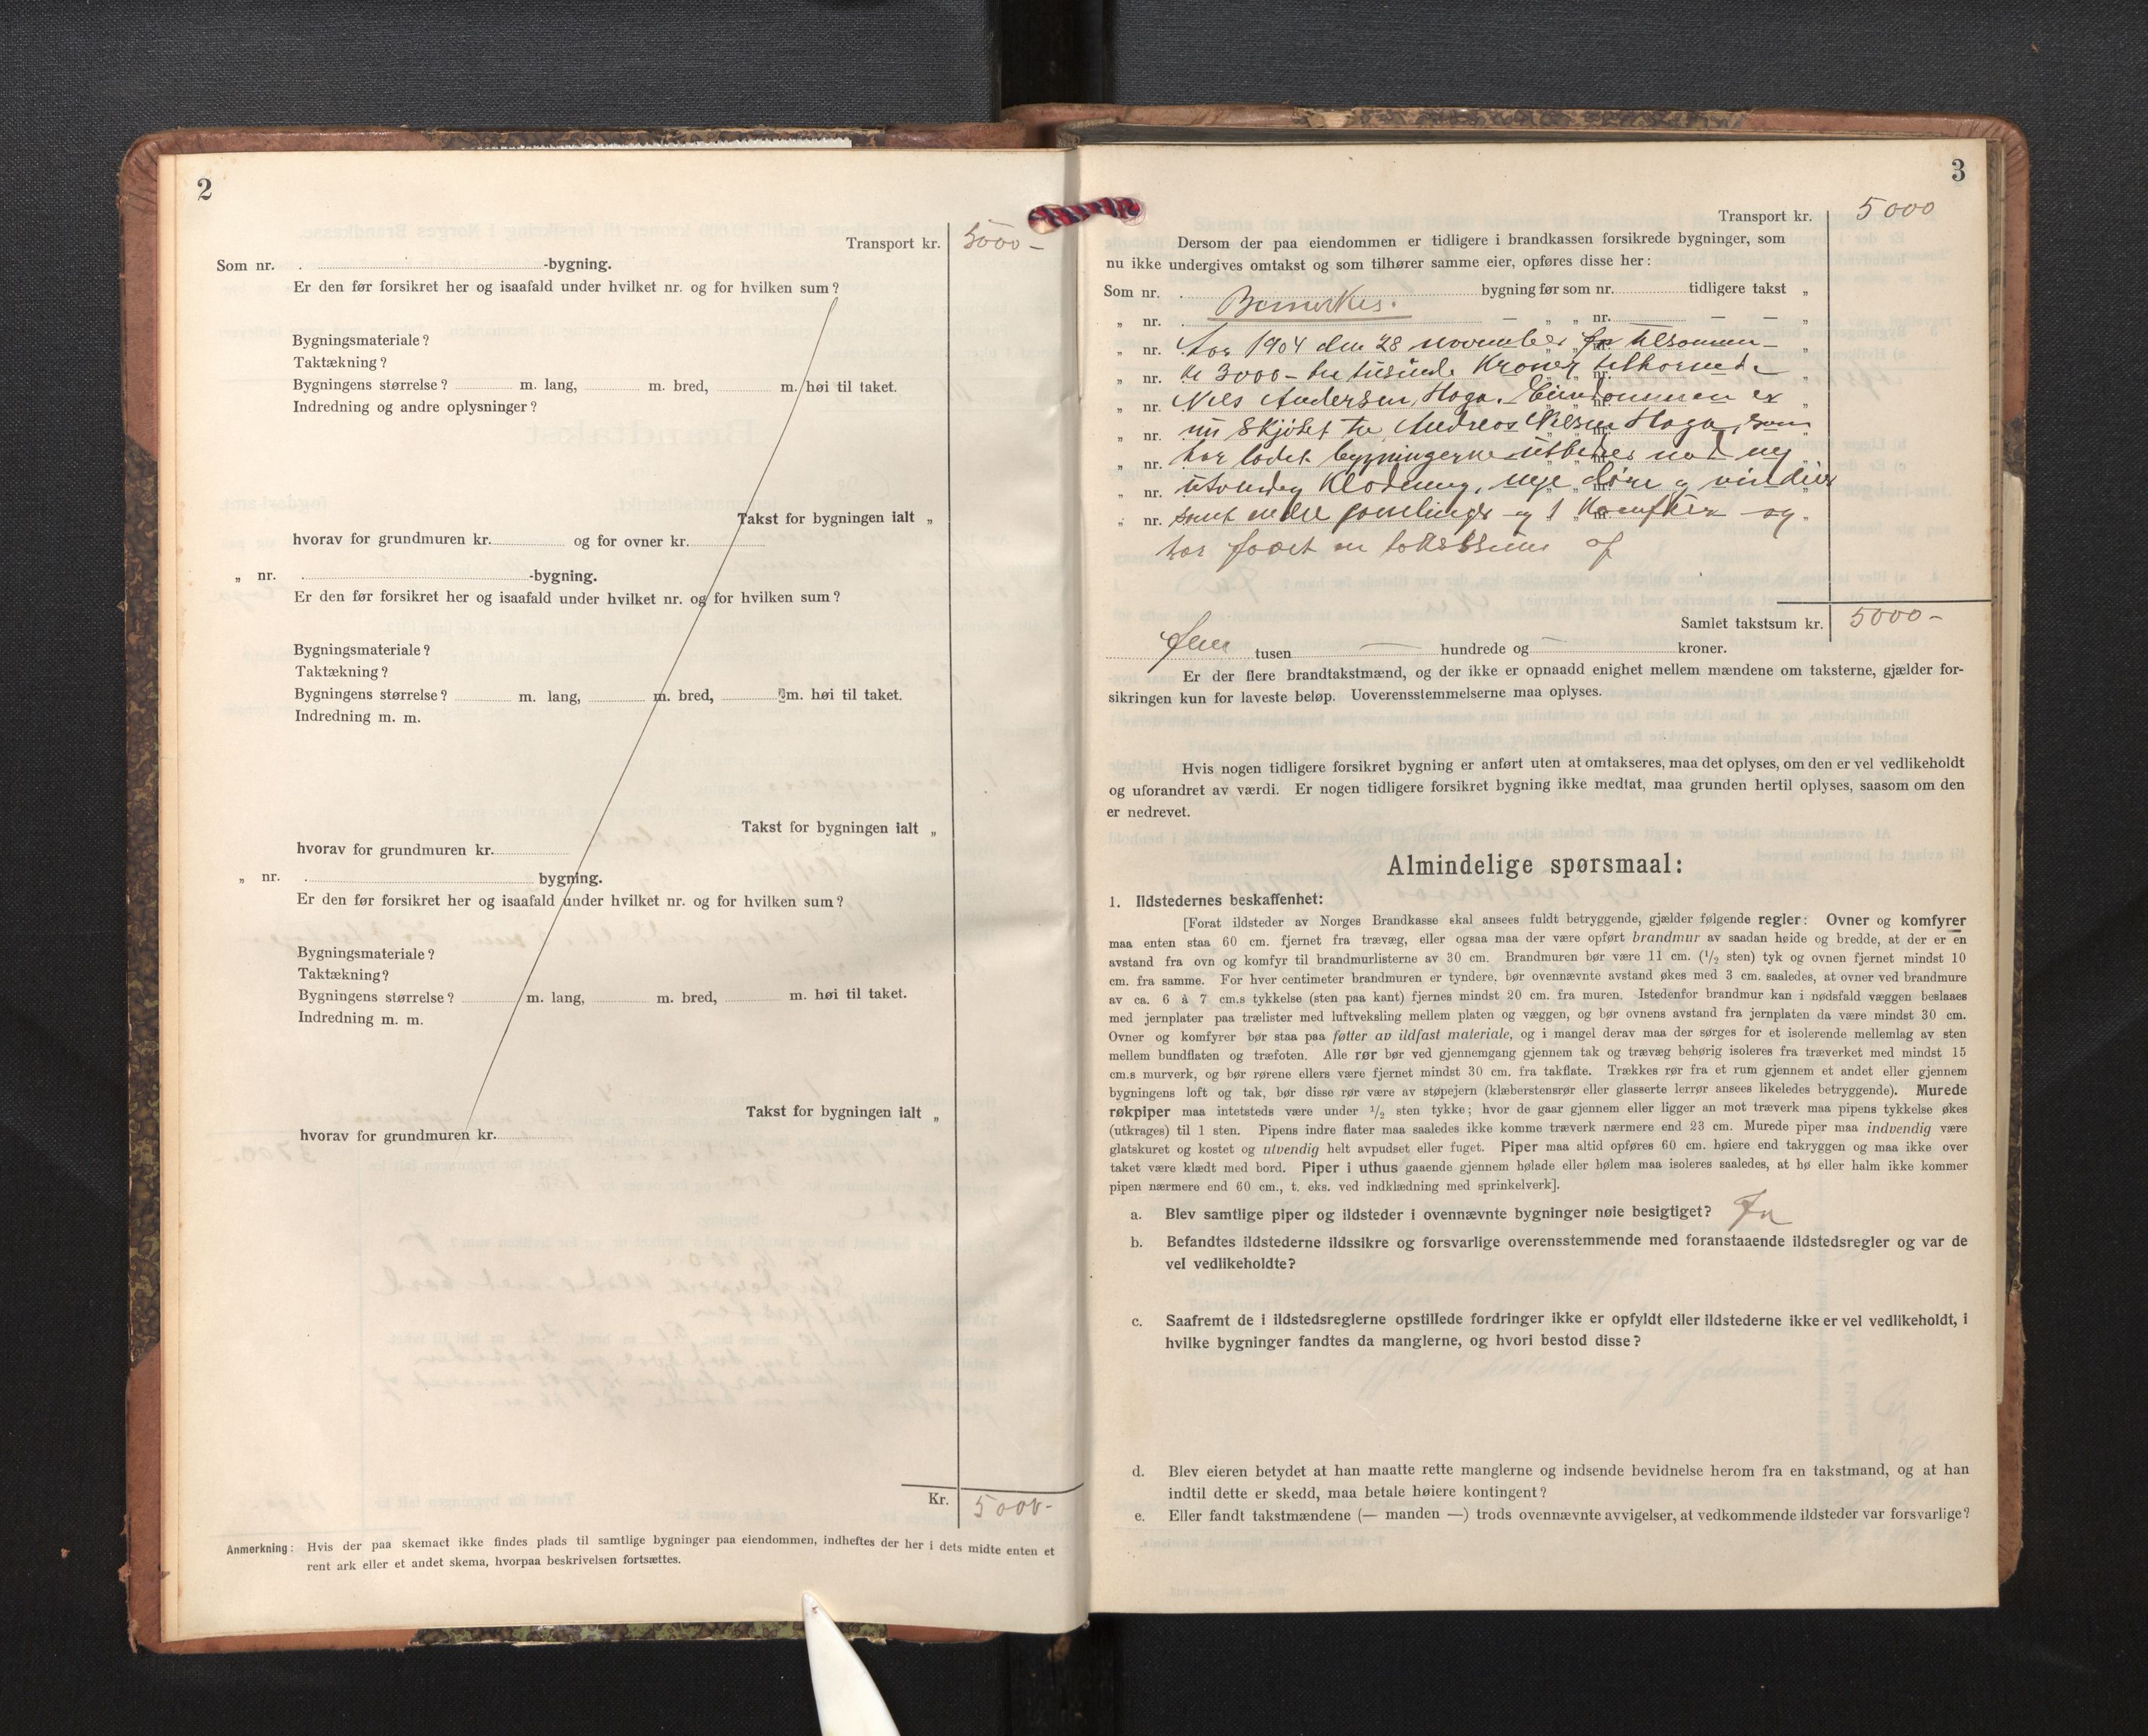 2
Transport kr. 5000 -
Som nr. . -bygning.
Er den før forsikret her og isaafald under hvilket nr. og for hvilken sum?
Bygningsmateriale?
Taktækning?
Bygningens størrelse? m. lang, m. bred, m. høi til taket.
Indredning og andre oplysninger?
Takst for bygningen ialt „
hvorav for grundmuren kr. og for ovner kr.
„ nr. . -bygning.
Er den før forsikret her og isaafald under hvilket nr. og for hvilken sum?
Bygningsmateriale?
Taktækning?
Bygningens størrelse? m. lang, m. bred, m. høi til taket.
Indredning m. m.
Takst for bygningen ialt „
hvorav for grundmuren kr.
„ nr. . bygning.
Er den før forsikret her og isaafald under hvilket nr. og for hvilken sum?
Bygningsmateriale?
Taktækning?
Bygningens størrelse? m. lang, m. bred, m. høi til taket.
Indredning m. m.
Takst for bygningen ialt „
hvorav for grundmuren kr.
Kr. 5000-
Anmerkning: Hvis der paa skemaet ikke findes plads til samtlige bygninger paa eiendommen, indheftes der her i dets midte enten et
rent ark eller et andet skema, hvorpaa beskrivelsen fortsættes.
3
Transport kr. 5000
Dersom der paa eiendommen er tidligere i brandkassen forsikrede bygninger, som
nu ikke undergives omtakst og som tilhører samme eier, opføres disse her:
Som nr. . bygning før som nr. tidligere takst „
„ nr. . Bemerkes. — „ „ nr. — — „
„ nr. Aar 1904 den 28 november
„ nr. kr 3000 - tre tusinde Kroner tilhørende
„ nr. Nils Andersen Haga. Eiendommen er
„ nr. nu skjøtet til Andreas Nilsen Haga, som
„ nr. har ladet bygningerne utbedres med ny
„ nr. utvendig Klædning, nye døre og vinduer
„ nr. samt andre og 1 Komfur og
har faaet en takstsum af
Samlet takstsum kr. 5000-
Fem tusen — hundrede og — kroner.
Er der flere brandtakstmænd, og der ikke er opnaadd enighet mellem mændene om taksterne, gjælder for-
sikringen kun for laveste beløp. Uoverensstemmelserne maa oplyses.
Hvis nogen tidligere forsikret bygning er anført uten at omtakseres, maa det oplyses, om den er vel vedlikeholdt
og uforandret av værdi. Er nogen tidligere forsikret bygning ikke medtat, maa grunden hertil oplyses, saasom om den
er nedrevet.
Almindelige spørsmaal:
1. Ildstedernes beskaffenhet:
[Forat ildsteder av Norges Brandkasse skal ansees fuldt betryggende, gjælder følgende regler: Ovner og komfyrer
maa enten staa 60 cm. fjernet fra trævæg, eller ogsaa maa der være opført brandmur av saadan høide og bredde, at der er en
avstand fra ovn og komfyr til brandmurlisterne av 30 cm. Brandmuren bør være 11 cm. (1/2 sten) tyk og ovnen fjernet mindst 10
cm. fra samme. For hver centimeter brandmuren er tyndere, bør ovennævnte avstand økes med 3 cm. saaledes, at ovner ved brandmure
av ca. 6 à 7 cm.s tykkelse (sten paa kant) fjernes mindst 20 cm. fra muren. Istedenfor brandmur kan i nødsfald væggen beslaaes
med jernplater paa trælister med luftveksling mellem platen og væggen, og bør ovnens avstand fra jernplaten da være mindst 30 cm.
Ovner og komfyrer bør staa paa føtter av ildfast materiale, og i mangel derav maa der sørges for et isolerende mellemlag av sten
mellem bundflaten og træfoten. Alle rør bør ved gjennemgang gjennem tak og trævæg behørig isoleres fra træverket med mindst 15
cm.s murverk, og bør rørene ellers være fjernet mindst 30 cm. fra takflate. Trækkes rør fra et rum gjennem et andet eller gjennem
bygningens loft og tak, bør disse rør være av støpejern (klæberstensrør eller glasserte lerrør ansees likeledes betryggende). Murede
røkpiper maa intetsteds være under 1/2 sten tykke; hvor de gaar gjennem eller ligger an mot træverk maa pipens tykkelse økes
(utkrages) til 1 sten. Pipens indre flater maa saaledes ikke komme træverk nærmere end 23 cm. Murede piper maa indvendig være
glatskuret og kostet og utvendig helt avpudset eller fuget. Piper maa altid opføres 60 cm. høiere end takryggen og maa ikke over
taket være klædt med bord. Piper i uthus gaaende gjennem hølade eller hølem maa isoleres saaledes, at hø eller halm ikke kommer
pipen nærmere end 60 cm., t. eks. ved indklædning med sprinkelverk].
a. Blev samtlige piper og ildsteder i ovennævnte bygninger nøie besigtiget? Ja
b. Befandtes ildstederne ildssikre og forsvarlige overensstemmende med foranstaaende ildstedsregler og var de
vel vedlikeholdte?
c. Saafremt de i ildstedsreglerne opstillede fordringer ikke er opfyldt eller ildstederne ikke er vel vedlikeholdt, i
hvilke bygninger fandtes da manglerne, og hvori bestod disse?
d. Blev eieren betydet at han maatte rette manglerne og indsende bevidnelse herom fra en takstmand, og at han
indtil dette er skedd, maa betale høiere kontingent?
e. Eller fandt takstmændene (— manden —) trods ovennævnte avvigelser, at vedkommende ildsteder var forsvarlige?